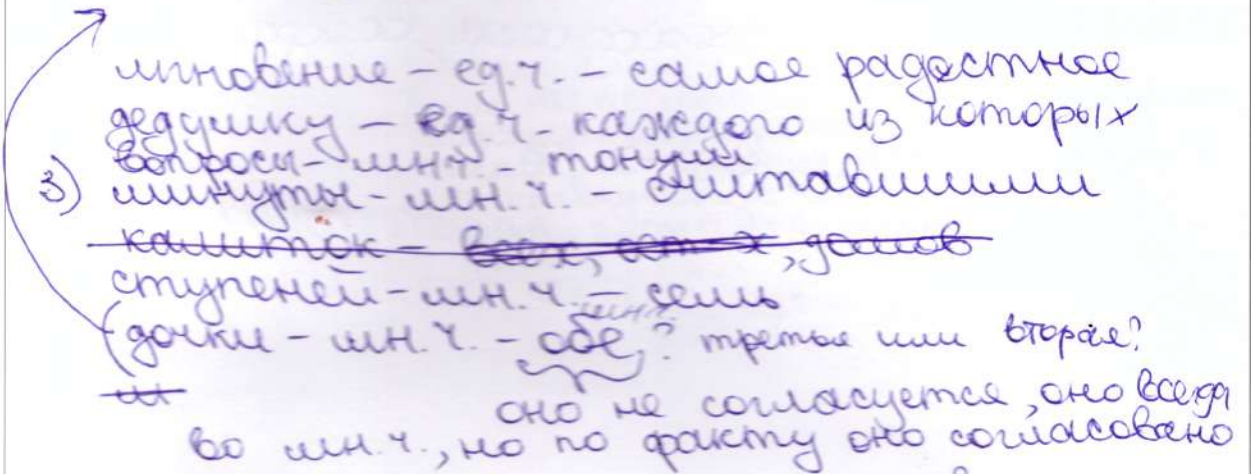 мгновение - ед.ч. - самое радостное
дедушку - ед.ч. - каждого из которых
вопросы - мн.ч. - тонули
3) минуты - мн.ч. - считавшими
калиток - всех, домов
ступеней - мн.ч. - семь
(дочки - мн.ч. - обе, ? третья или вторая?
оно не согласуется, оно всегда
во мн.ч., но по факту оно согласовано